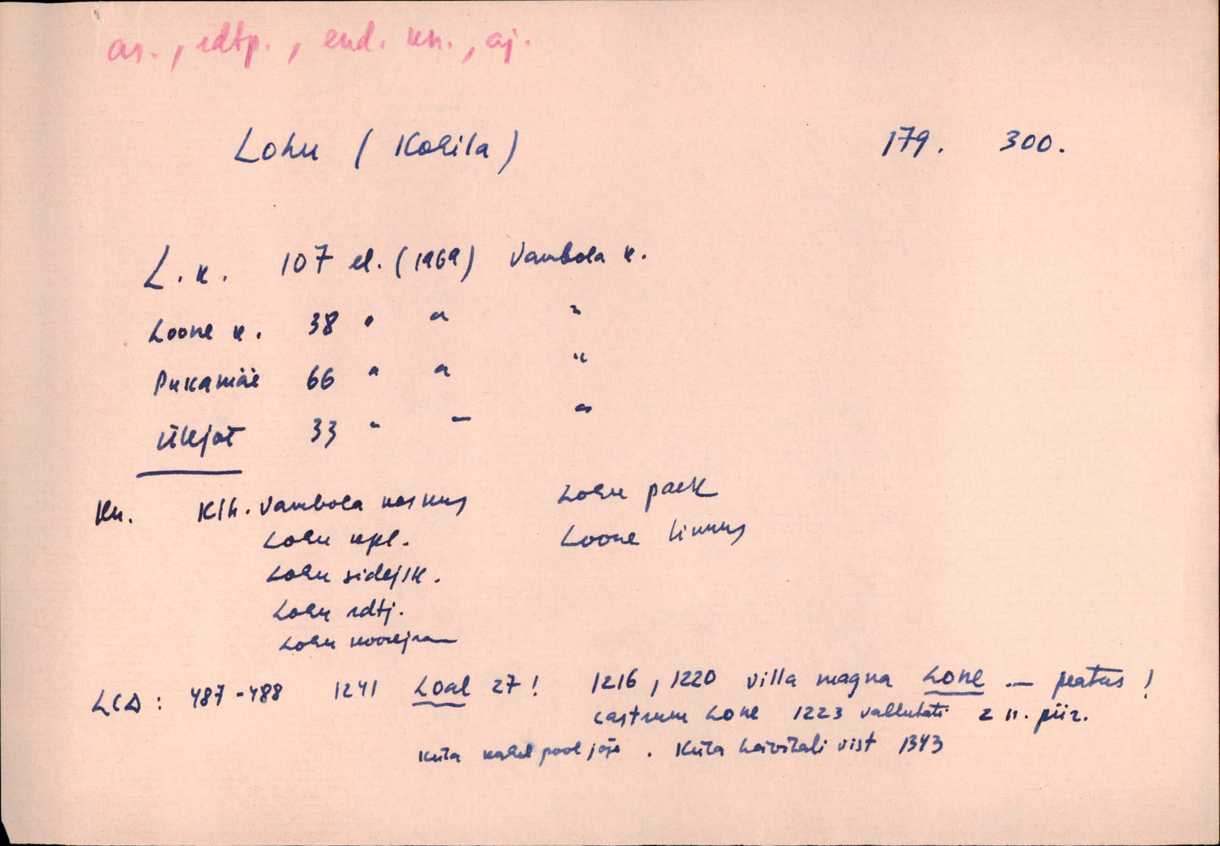 as., rdtp., end. kn., aj.
Lohu (Kohila) 179. 300.
L. k. 107 el. (1969) Vambola k.
Loone k. 38 " " "
Pukamäe 66 " " "
Ülejõe 33 " — "
Kn. Klh. Vambola keskus Lohu park
Lohu kpl. Loone linnus
Lohu sidejsk.
Lohu rdtj.
Lohu
LCD: 487-488 1241 Loal 27! 1216, 1220 villa magna Lone — peatus!
castrum Lone 1223 vallutati 2 n. piir.
Küla kahel pool jõge. Küla hävitati vist 1343